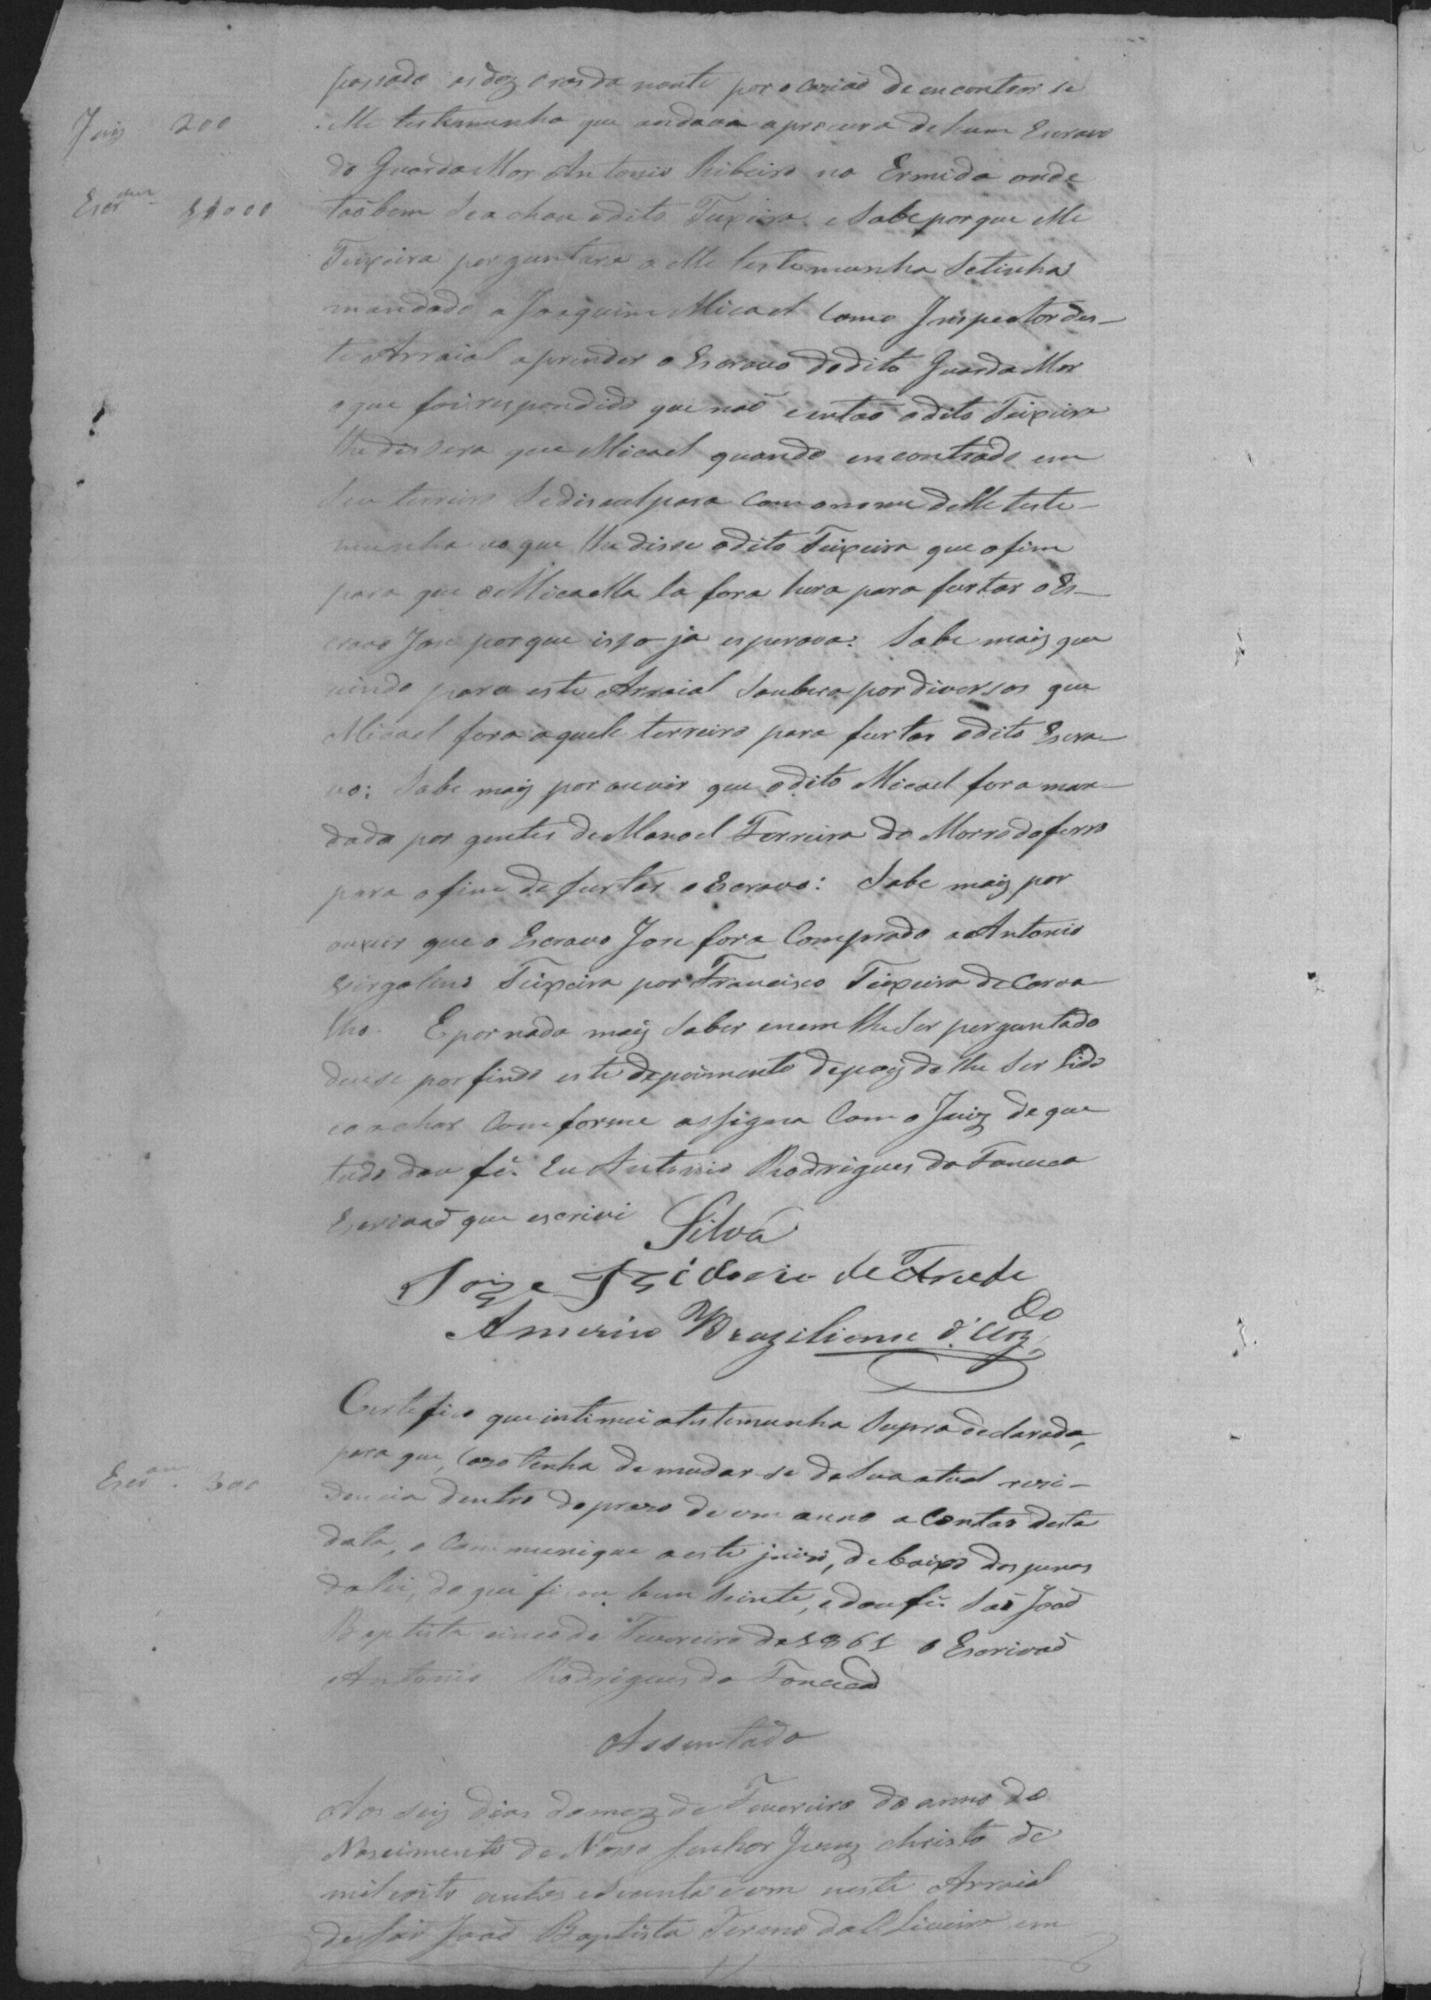 passado as dez oras da noute por ocazião de encontrar se
elle testemunha que andava a procura de hum Escravo
Juiz 200
do Guarda Mor Antonio Ribeiro na Ermida onde
Escr.am 1$000
taõbem se achou o dito Teixeira e sabe porque elle
Teixeira perguntara a elle testemunha se tinha
mandado a Joaquim Micael como Inspector des-
te Arraial aprender o Escravo do dito Guarda Mor
o que foi respondido que naõ e entaõ o dito Teixeira
lhe dissera que Micael quando encontrado em
seu terreiro se disculpara com o nome delle teste-
munha ao que lhe disse o dito Teixeira que o fim
para que Micaella la fora hera para furtar o Es-
cravo Jose porque isso ja esperava: Sabe mais que
vindo para este Arraial soubera por diversos que
Micael fora aquele terreiro para furtar o dito Escra-
vo: Sabe mais por ouvir que o dito Micael fora man-
dado por gentes de Manoel Ferreira do Morro do ferro
para o fim de furtar o Escravo: Sabe mais por
ouvir que o Escravo Jose fora Comprado a Antonio
Virgolino Teixeira por Francisco Teixeira de Carva-
lho. E por nada mais saber e nem lhe ser perguntado
deuse por findo este depoimento depois de lhe ser lido
e o achar comforme assigna com o Juiz de que
tudo dou fé. Eu Antonio Rodrigues da Fonceca
Escrivaõ que escrivi Silva
Joze Izidorio de
Americo Braziliense d'
Certefico que intimei a testemunha supra declarada,
para que, caso tenha de mudar-se da sua atual rezi-
Escr.am 300
dencia dentro do prazo de um anno a contar desta
data, o communique a este juizo, debaixo das penas
da lei, do que ficou bem sciente, e dou fé. Saõ Joaõ
Baptista cinco de Fevereiro de 1861 o Escrivaõ
Antonio Rodrigues da Fonceca
Assentada
Aos seis dias do mez de Fevereiro do anno do
Nascimento de Nosso Senhor Jesuz Christo de
mil oito centos e secenta e um neste Arraial
de Saõ Joaõ Baptista Termo da Oliveira em